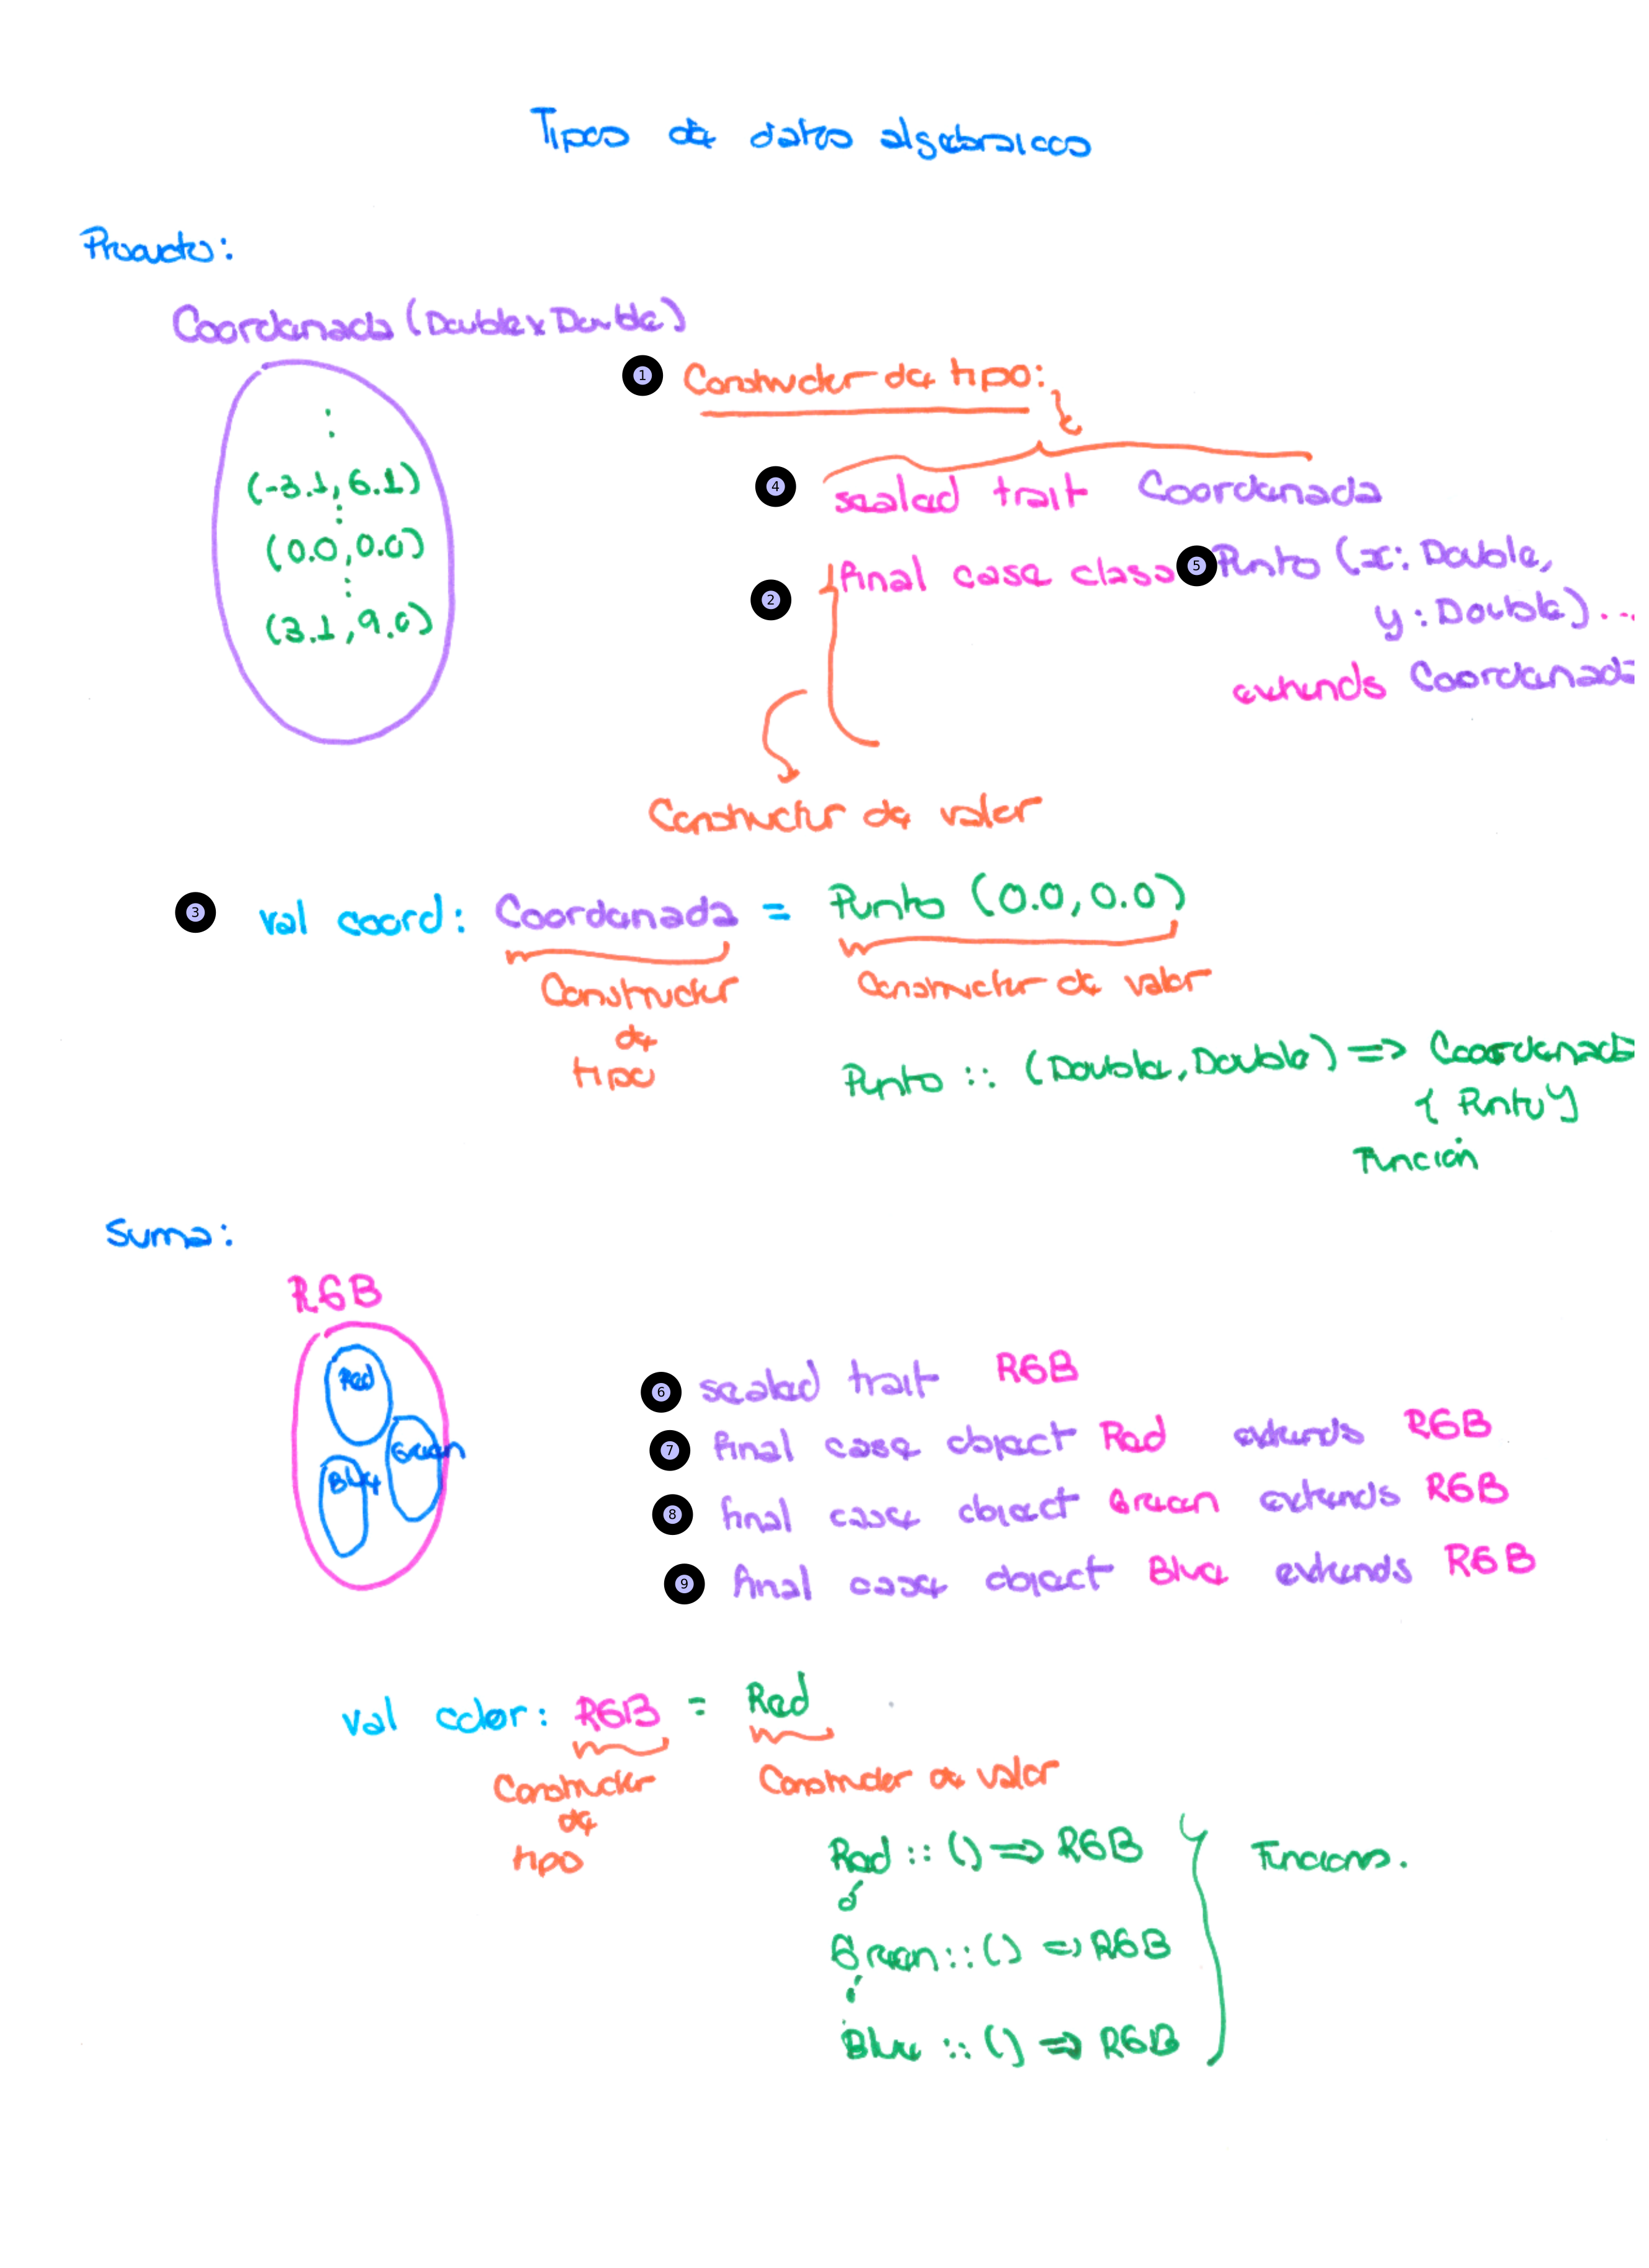 Tipos de datos algebraicos
Producto:
Coordenada (Double x Double)
1 Constructor de tipo:
(-3.1, 6.1)
(0.0, 0.0)
(3.1, 9.0)
4 sealed trait Coordenada
2 final case class 5 Punto (x: Double,
y: Double) ...
extends Coordenada
Constructor de valor
3 val coord: Coordenada = Punto (0.0, 0.0)
Constructor de tipo
Constructor de valor
Punto :: (Double, Double) => Coordenada
{ Punto }
Función
Suma:
RGB
Red
Green
Blue
6 sealed trait RGB
7 final case object Red extends RGB
8 final case object Green extends RGB
9 final case object Blue extends RGB
val color: RGB = Red
Constructor de tipo
Constructor de valor
Red :: () => RGB
ó
Green :: () => RGB
Blue :: () => RGB
Funciones.